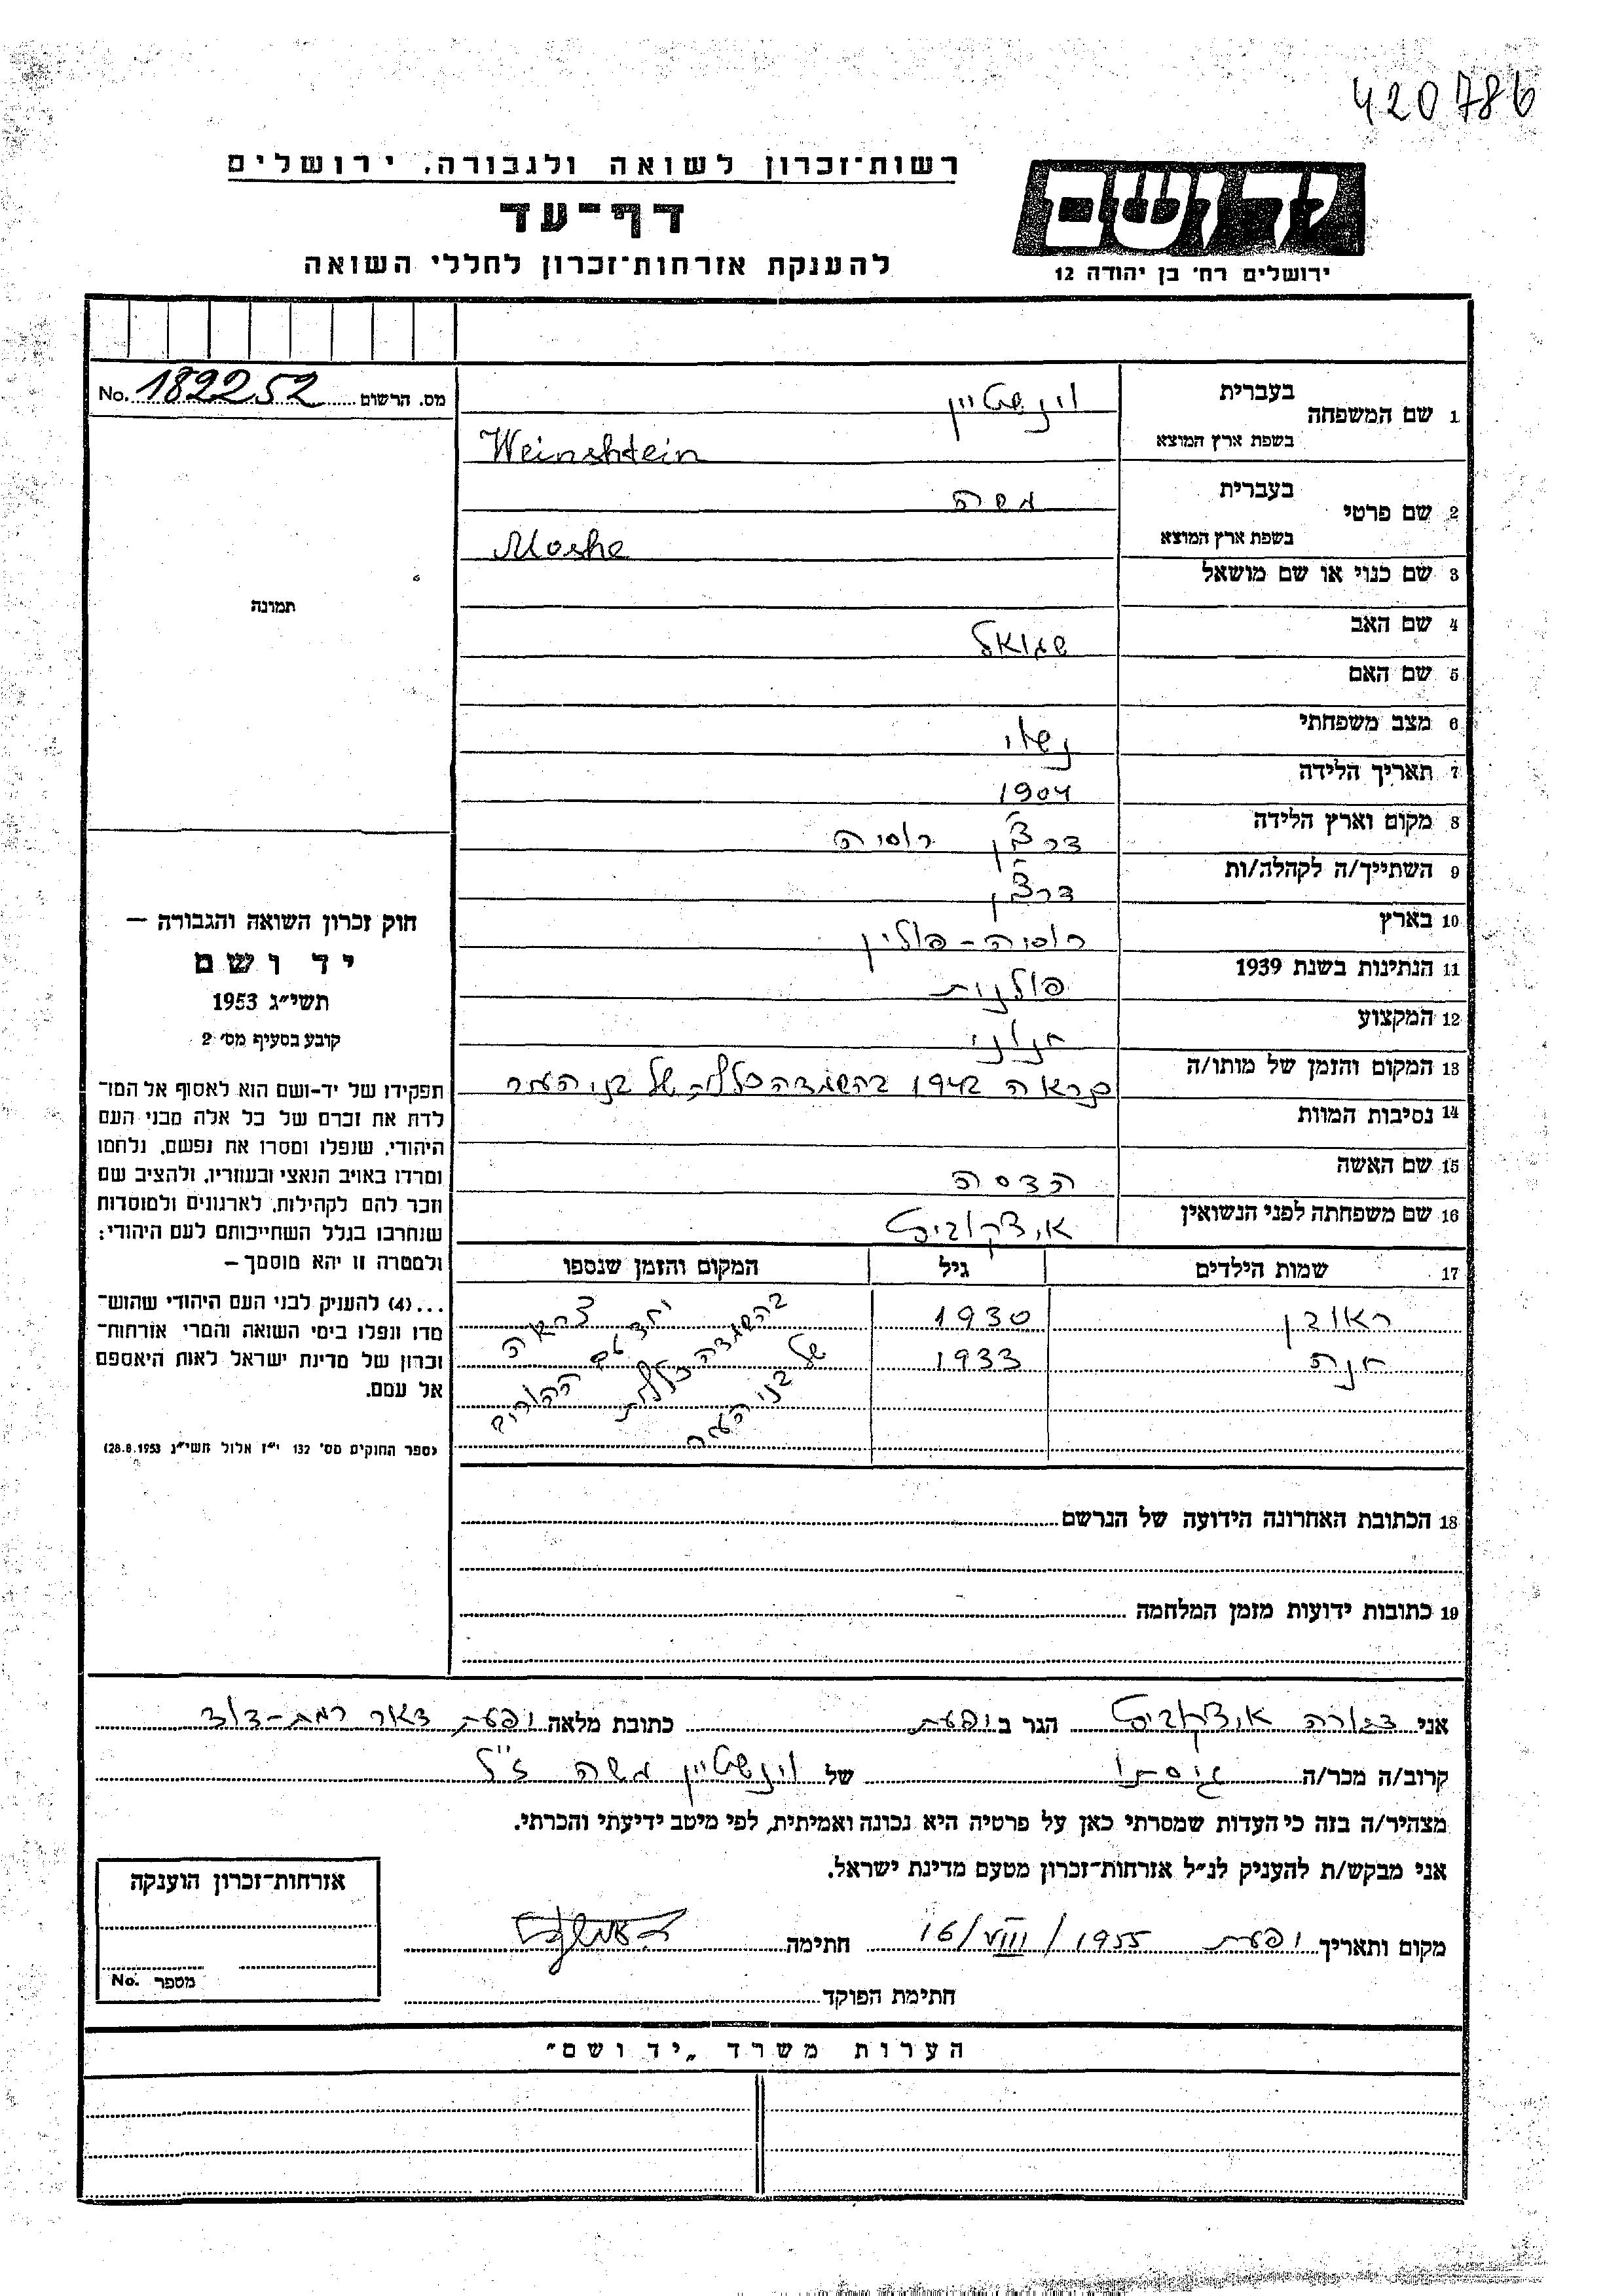 420786
רשות-זכרון לשואה ולגבורה, ירושלים
דף-עד
להענקת אזרחות-זכרון לחללי השואה
יד ושם
ירושלים רח' בן יהודה 12
מס. הרשום 182252 No.
תמונה
1 שם המשפחה בעברית וינשטיין
בשפת ארץ המוצא Weinshtein
2 שם פרטי בעברית משה
בשפת ארץ המוצא Moshe
3 שם כנוי או שם מושאל
4 שם האב שמואל
5 שם האם
6 מצב משפחתי נשוי
7 תאריך הלידה 1904
8 מקום וארץ הלידה רוסיה
9 השתייך/ה לקהלה/ות
10 בארץ רוסיה-פולין
11 הנתינות בשנת 1939 פולנית
12 המקצוע חנוני
13 המקום והזמן של מותו/ה 1942 בהשמדה כללית של בני העיר
14 נסיבות המוות
15 שם האשה הדסה
16 שם משפחתה לפני הנשואין איצקוביץ
17 שמות הילדים גיל המקום והזמן שנספו
ראובן 1930
חנה 1933
יחד עם ההורים
בהשמדה כללית
של בני העיר
18 הכתובת האחרונה הידועה של הנרשם
19 כתובות ידועות מזמן המלחמה
חוק זכרון השואה והגבורה –
יד ושם
תשי"ג 1953
קובע בסעיף מס' 2
תפקידו של יד-ושם הוא לאסוף אל המו-
לדת את זכרם של כל אלה מבני העם
היהודי, שנפלו ומסרו את נפשם, נלחמו
ומרדו באויב הנאצי ובעוזריו, ולהציב שם
וזכר להם לקהילות, לארגונים ולמוסדות
שנחרבו בגלל השתייכותם לעם היהודי;
ולמטרה זו יהא מוסמך –
...(4) להעניק לבני העם היהודי שהוש-
מדו ונפלו בימי השואה והמרי אזרחות-
זכרון של מדינת ישראל לאות היאספם
אל עמם.
(ספר החוקים מס' 132 י"ז אלול תשי"ג 28.8.1953)
אני דבורה איצקוביץ הגר ב יפעת כתובת מלאה יפעת דאר רמת-דוד
קרוב/ה מכר/ה גיסתו של וינשטיין משה ז"ל
מצהיר/ה בזה כי העדות שמסרתי כאן על פרטיה היא נכונה ואמיתית, לפי מיטב ידיעתי והכרתי.
אני מבקש/ת להעניק לנ"ל אזרחות-זכרון מטעם מדינת ישראל.
מקום ותאריך יפעת 16/VIII/1955 חתימה
חתימת הפוקד
אזרחות-זכרון הוענקה
מספר No.
הערות משרד „יד ושם"